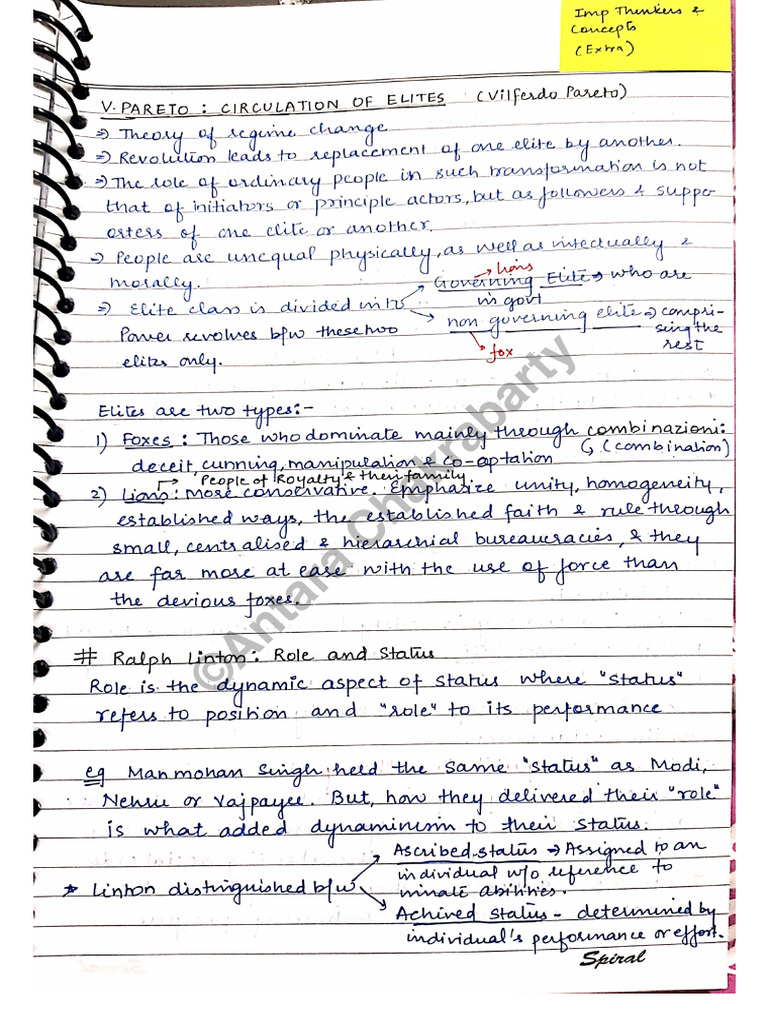 Imp Thinkers &
Concepts
(Extra)
V. PARETO : CIRCULATION OF ELITES (Vilferdo Pareto)
⇒ Theory of regime change
⇒ Revolution leads to replacement of one elite by another.
⇒ The role of ordinary people in such transformation is not
that of initiators or principle actors, but as followers & suppo-
orters of one elite or another.
⇒ People are unequal physically, as well as intectually &
morally.
→ lions
⇒ Elite class is divided into
Governing Elite ⇒ who are
in govt
Power revolves b/w these two
non governing elite ⇒ compri-
sing the
rest
elites only.
fox
Elites are two types:-
1) Foxes : Those who dominate mainly through combinazioni:
↳ (combination)
deceit, cunning, manipulation & co-optation
→ People of Royalty & their family.
2) Lions : more conservative. Emphasize unity, homogeneity,
established ways, the established faith & rule through
small, centralised & hierarchial bureaucracies, & they
are far more at ease with the use of force than
the devious foxes.
# Ralph Linton: Role and Status
Role is the dynamic aspect of status where "status"
refers to position and "role" to its performance
eg Manmohan Singh held the same "status" as Modi,
Nehru or Vajpayee. But, how they delivered their "role"
is what added dynaminism to their status.
* Linton distinguished b/w
Ascribed status ⇒ Assigned to an
individual w/o reference to
innate abilities.
Achived status - determined by
individual's performance or effort.
Spiral
©Antara Chakrabarty